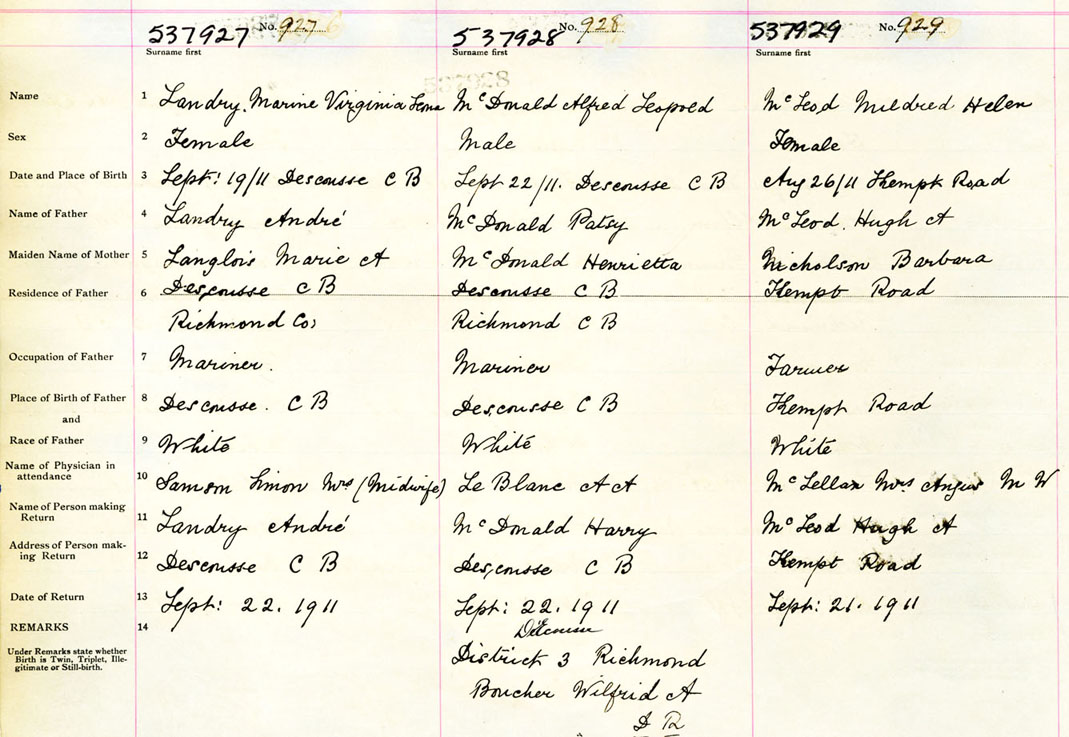 537927 No. 927 537928 No. 928 537929 No. 929
Surname first Surname first Surname first
Name 1 Landry, Marine Virginia Mc Donald Alfred Leopold Mc Leod Mildred Helen
Sex 2 Female Male Female
Date and Place of Birth 3 Sept: 19/11 Descousse C B Sept 22/11. Descousse C B Aug 26/11 Kempt Road
Name of Father 4 Landry André Mc Donald Patsy Mc Leod. Hugh A
Maiden Name of Mother 5 Langlois Marie A Mc Donald Henrietta Nicholson Barbara
Residence of Father 6 Descousse C B Descousse C B Kempt Road
Richmond Co; Richmond C B
Occupation of Father 7 Mariner. Mariner Farmer
Place of Birth of Father 8 Descousse. C B Descousse C B Kempt Road
and
Race of Father 9 White White White
Name of Physician in
attendance 10 Samson Simon Mrs (Midwife) Le Blanc A A Mc Lellan Mrs Angus M W
Name of Person making
Return 11 Landry André Mc Donald Harry Mc Leod Hugh A
Address of Person mak-
ing Return 12 Descousse C B Descousse C B Kempt Road
Date of Return 13 Sept: 22. 1911 Sept: 22. 1911 Sept: 21. 1911
REMARKS 14
Under Remarks state whether
Birth is Twin, Triplet, Ille-
gitimate or Still-birth.
District 3 Richmond
Boucher Wilfrid A
D R